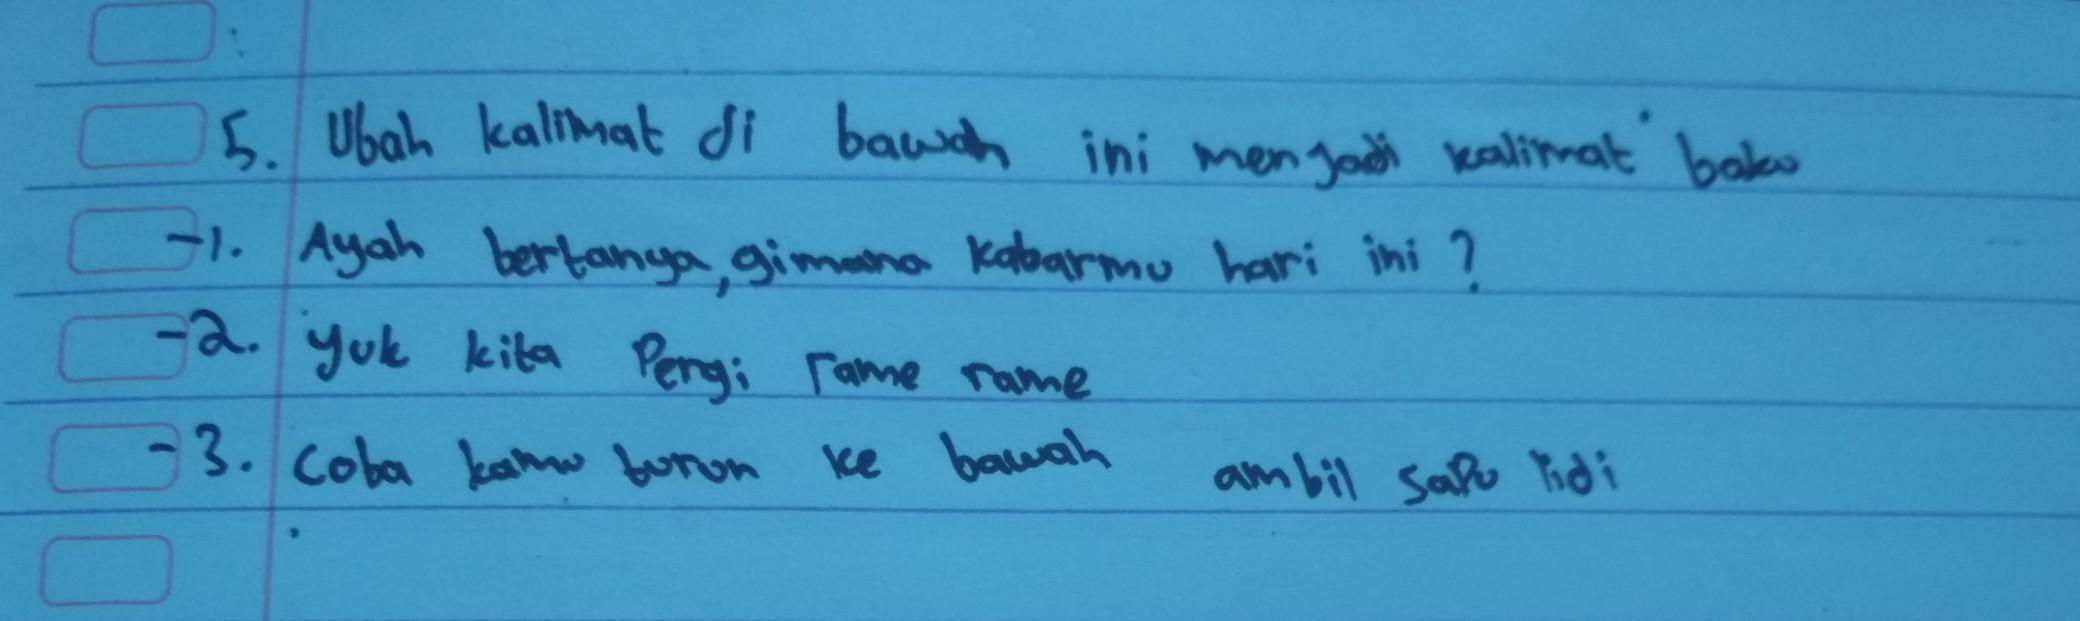 5. Ubah kalimat di bawah ini menjadi kalimat baku
-1. Ayah bertanya, gimana kabarmu hari ini?
-2. yuk kita Pergi rame rame
-3. Coba kamu turun ke bawah ambil sapu lidi